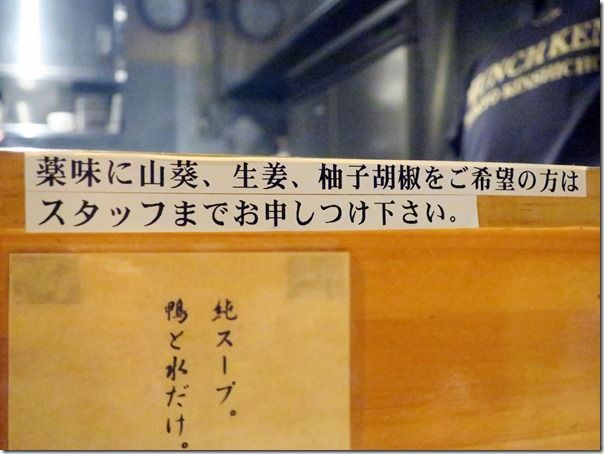 薬味に山葵、生姜、柚子胡椒をご希望の方は
スタッフまでお申しつけ下さい。
純スープ。
鴨と水だけ。